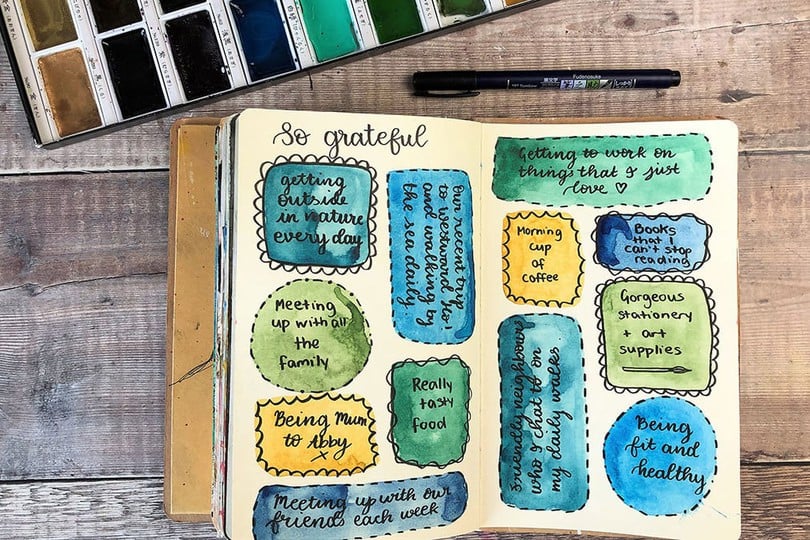 Fudenosuke
So grateful
getting
outside
in nature
every day
Our recent trip
to westward Ho!
and walking by
the sea daily.
Meeting
up with all
the
family
Really
tasty
food
Being Mum
to Abby
x
Meeting up with our
friends each week
Getting to work on
things that I just
love ♡
Morning
cup
of
coffee
Books
that I
can't stop
reading
Gorgeous
stationery
+ art
supplies
Friendly neighbours
who I chat to on
my daily walks
Being
fit and
healthy